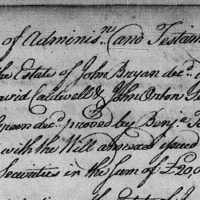 of Adminis.n and Testam
the Estate of John Bryan dec.d
David Caldwell & John Orton
Green dec.d proved by Benj.a
with the Will annexed issued
Securities in the Sum of £20,0